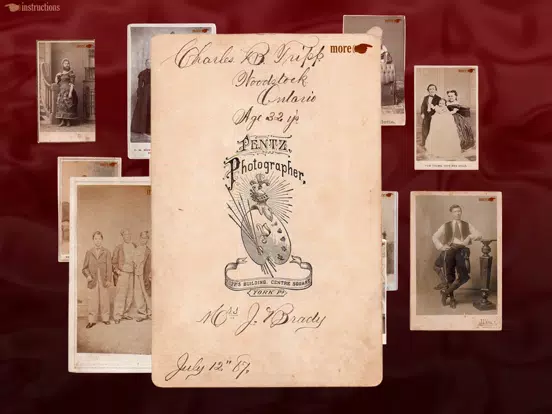 instructions
more
Charles B. Tripp
Woodstock
Ontario
Age 32 yrs
PENTZ,
Photographer,
BUILDING, CENTRE SQUARE
YORK PA.
Mrs J. Brady
July 12th 87.